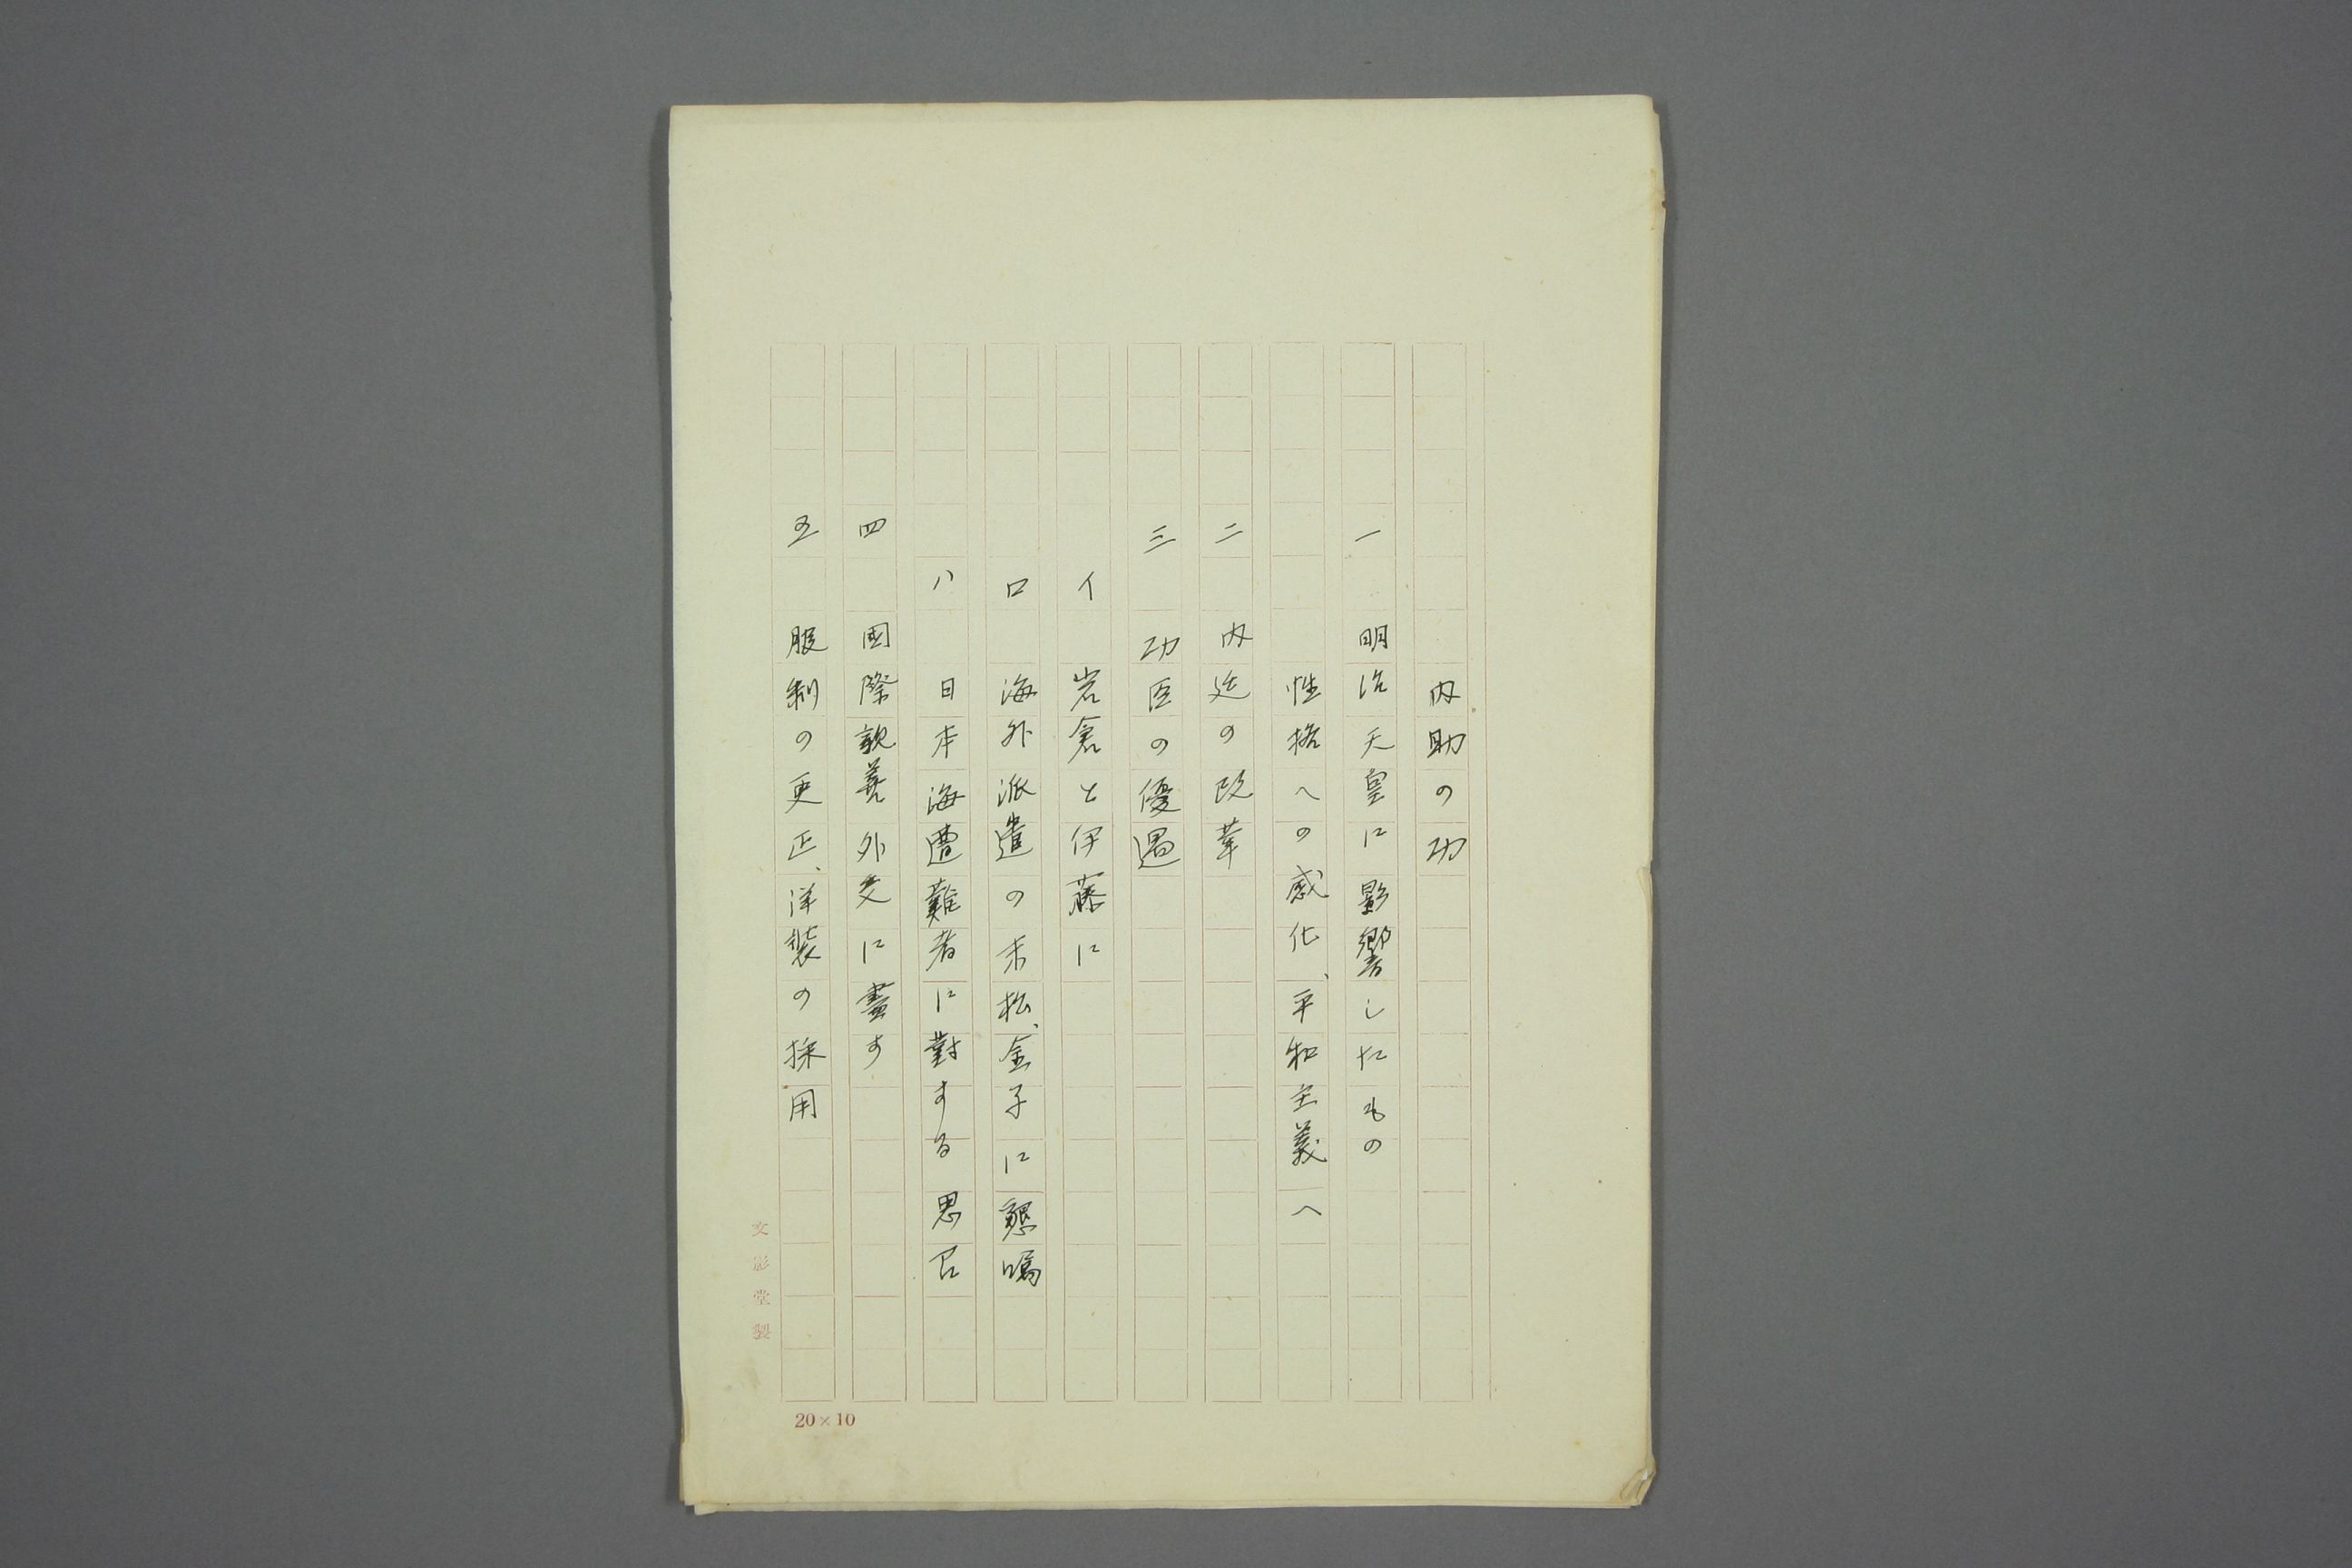 内助の功
一 明治天皇に影響したもの
性格への感化、平和主義へ
二 内廷の改革
三 功臣の優遇
イ 岩倉と伊藤に
ロ 海外派遣の末松、金子に懇嘱
ハ 日本海遭難者に對する思召
四 國際親善外交に盡す
五 服制の更正、洋装の採用
文影堂製
20×10